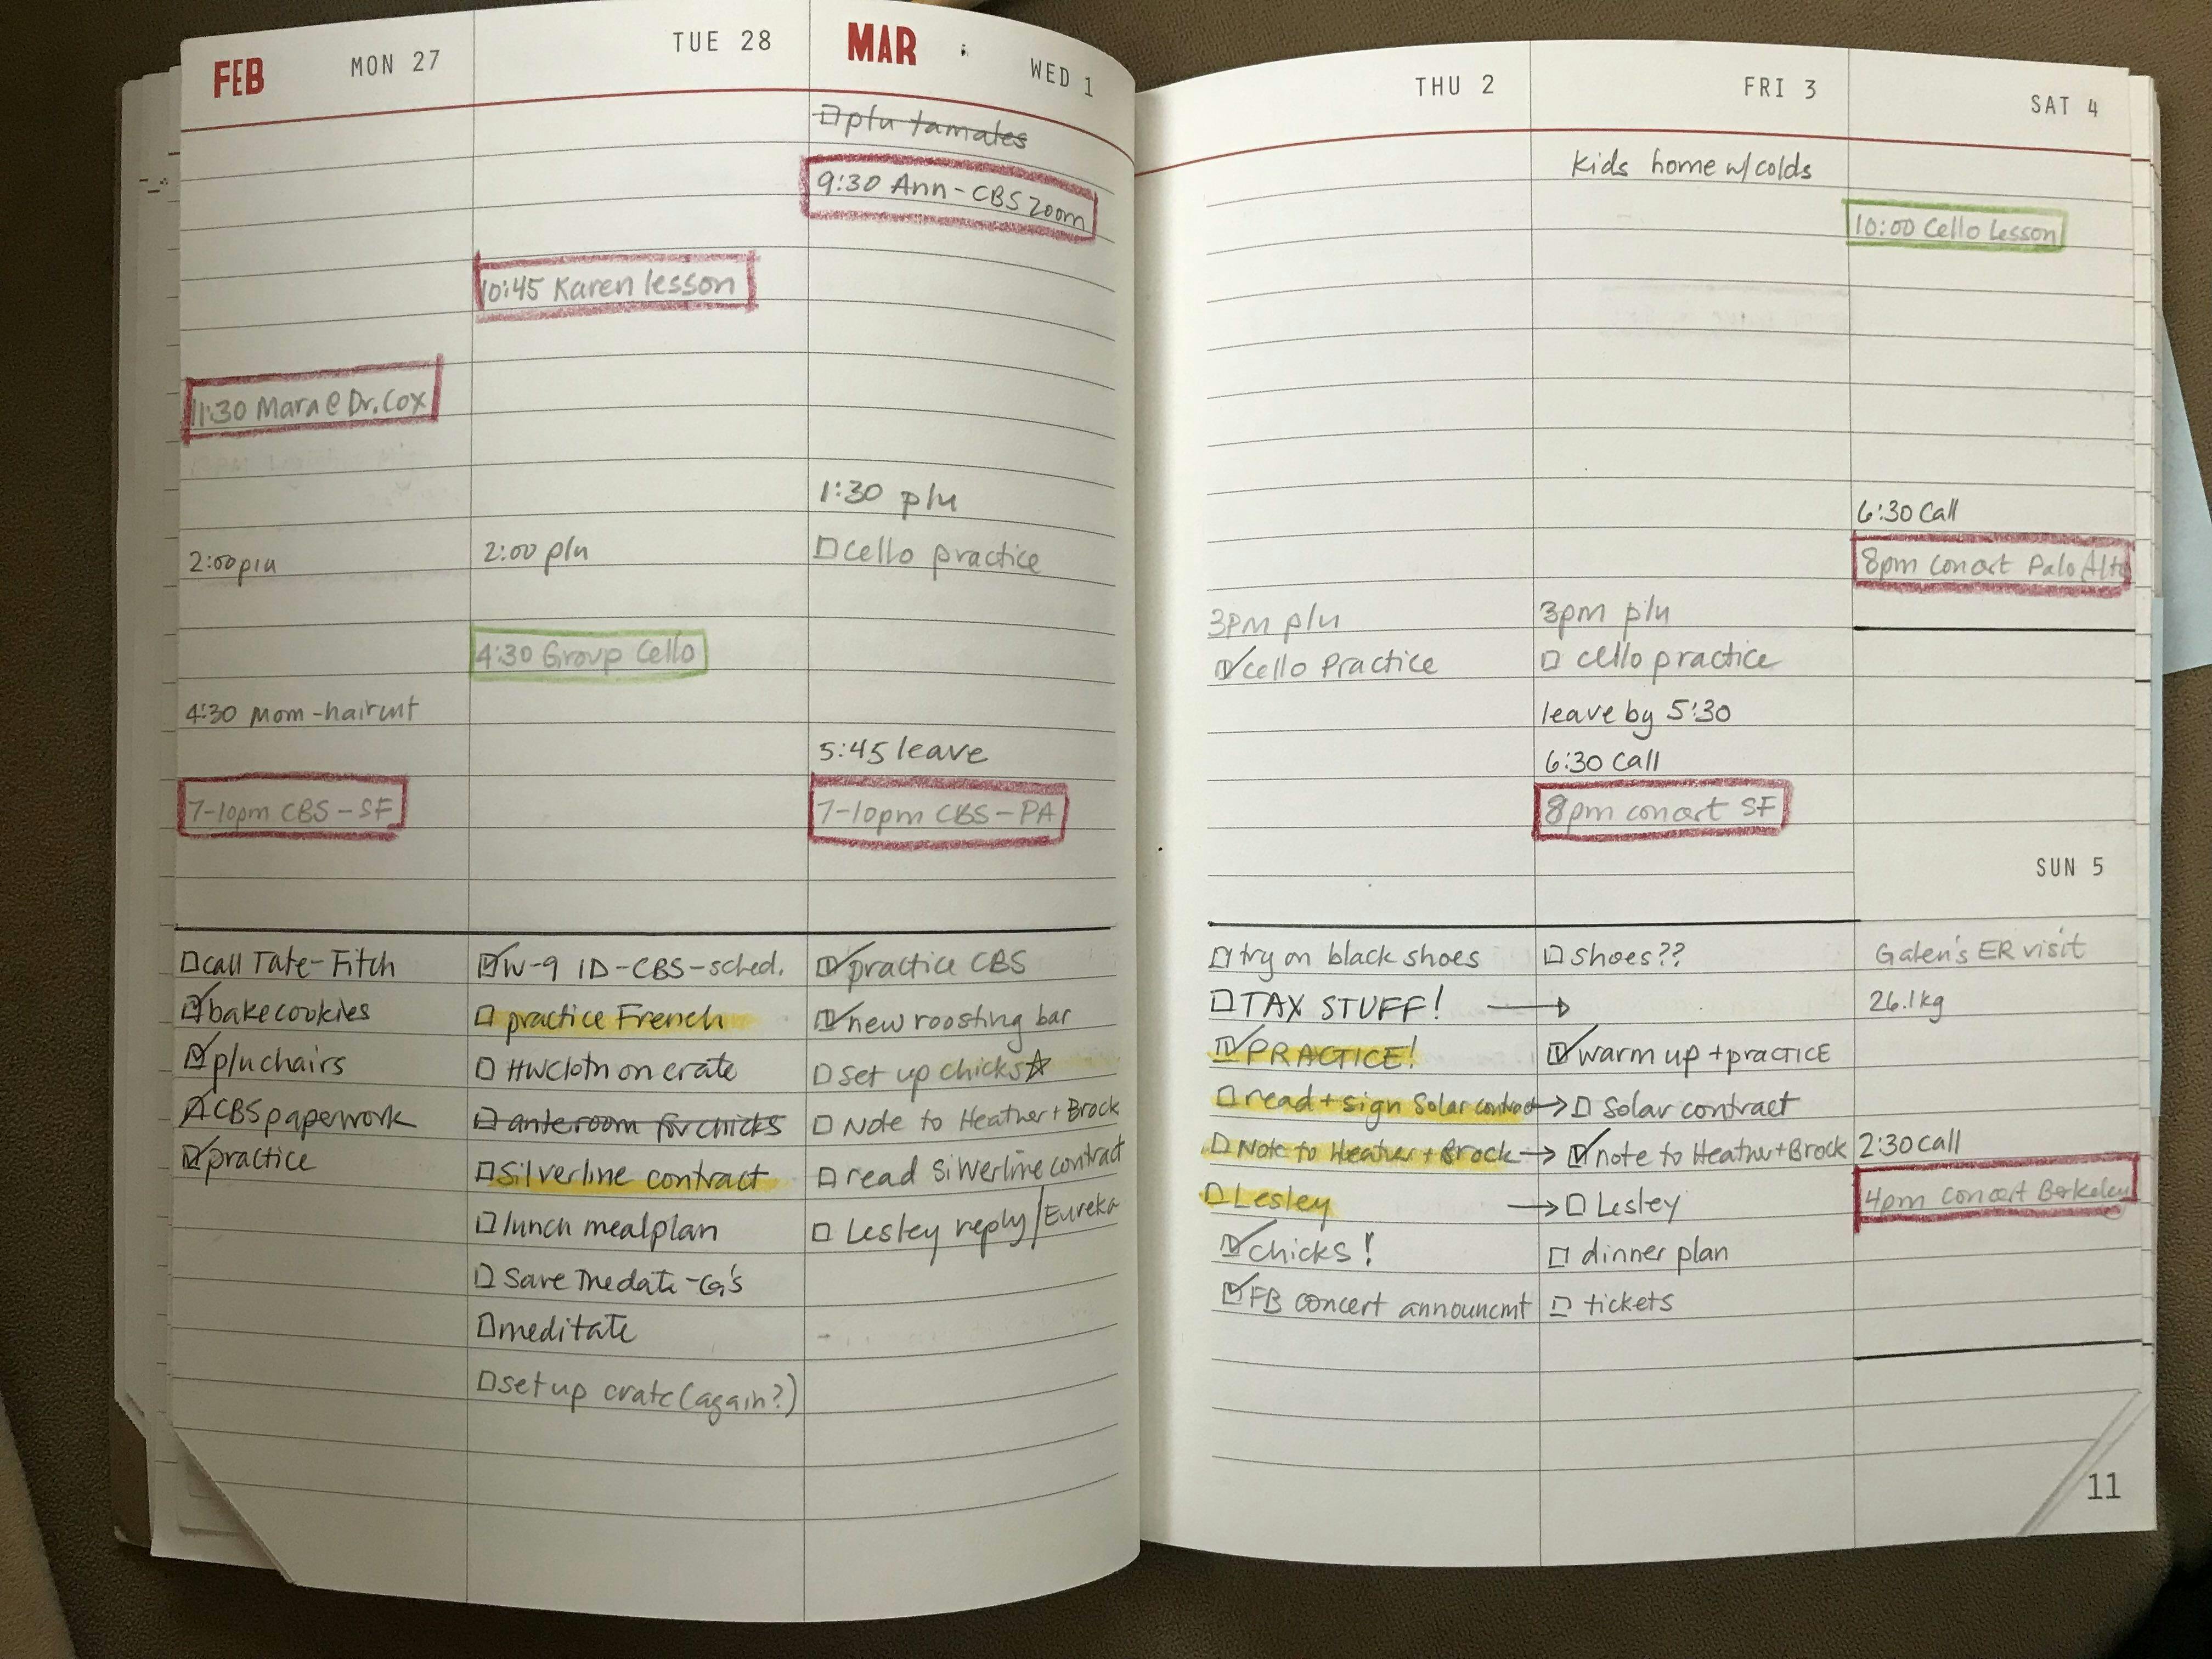 FEB MON 27
11:30 Mara @ Dr. Cox
2:00 p/u
4:30 Mom - haircut
7-10pm CBS - SF
call Tate-Fitch
bake cookies
p/u chairs
CBS paperwork
practice
TUE 28
10:45 Karen lesson
2:00 p/u
4:30 Group Cello
W-9 ID-CBS-sched.
practice French
HWCloth on crate
anteroom for chicks
Silverline contract
lunch mealplan
Save the date - G's
meditate
set up crate (again?)
MAR WED 1
p/u tamales
9:30 Ann - CBS Zoom
1:30 p/u
cello practice
5:45 leave
7-10pm CBS - PA
practice CBS
new roosting bar
set up chicks
Note to Heather + Brock
read Silverline contract
Lesley reply/Eureka
THU 2
3PM p/u
cello Practice
try on black shoes
TAX STUFF! →
PRACTICE!
read + sign Solar contract →
Note to Heather + Brock →
Lesley →
chicks!
FB concert announcmt
FRI 3
Kids home w/colds
3pm p/u
cello practice
leave by 5:30
6:30 call
8pm concert SF
shoes??
warm up + practice
Solar contract
note to Heather + Brock
Lesley
dinner plan
tickets
SAT 4
10:00 Cello Lesson
6:30 Call
8pm concert Palo Alto
SUN 5
Galen's ER visit
26.1kg
2:30 call
4pm concert Berkeley
11